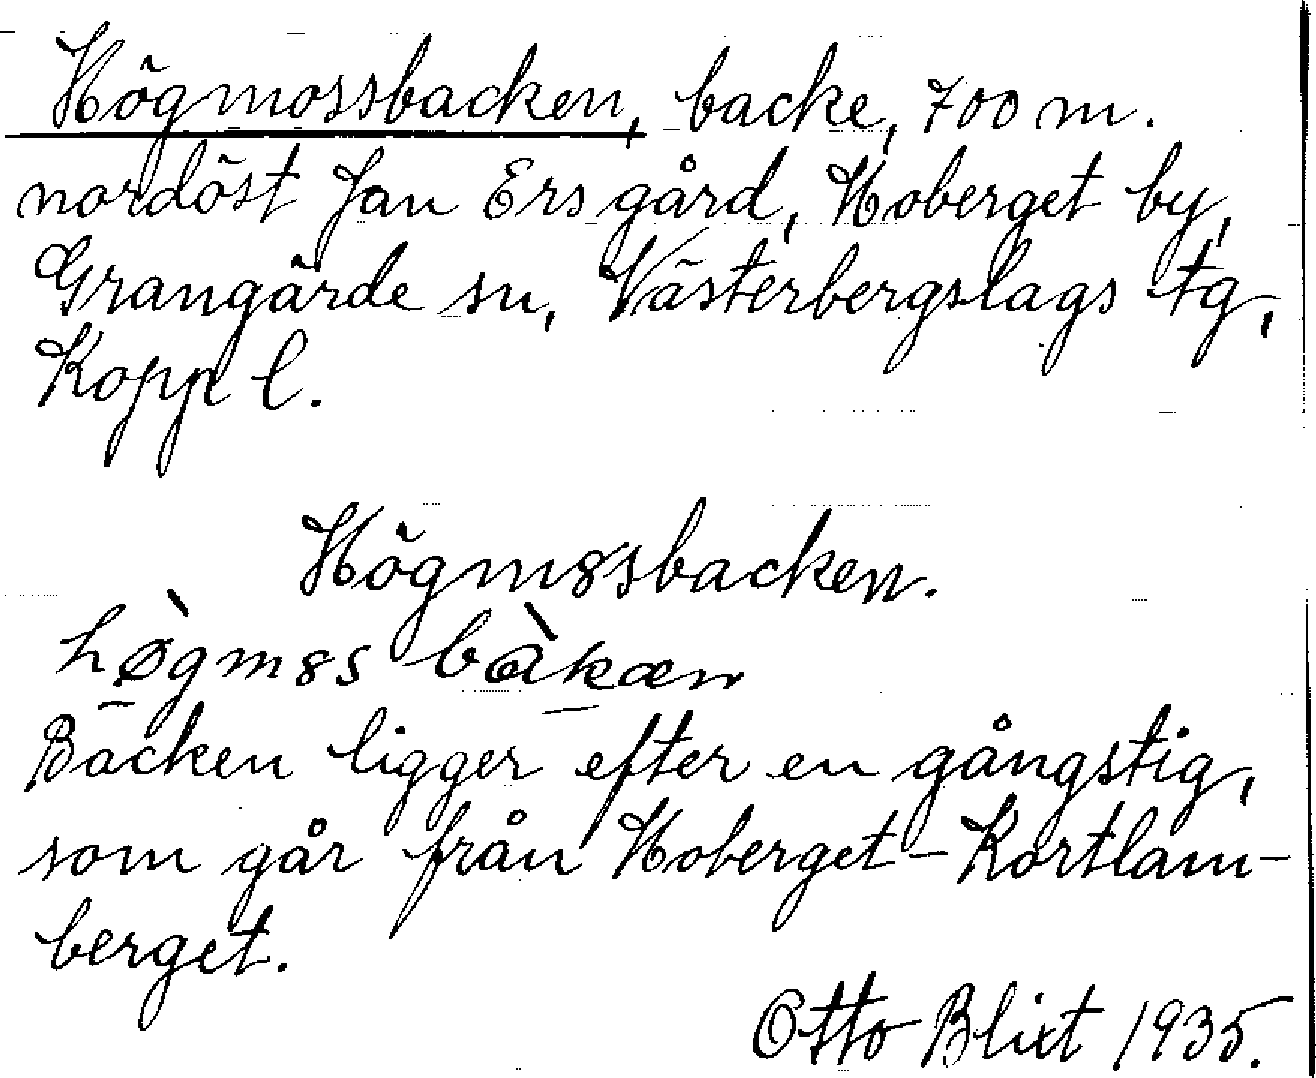 Högmossbacken, backe, 700 m.
nordöst Jan Ers gård, Hoberget by,
Grangärde sn, Västerbergslags tg,
Kopp l.
Högm8sbacken.
høgm8s bàkæn
Backen ligger efter en gångstig,
som går från Hoberget - Kortlam-
berget.
Otto Blixt 1935.